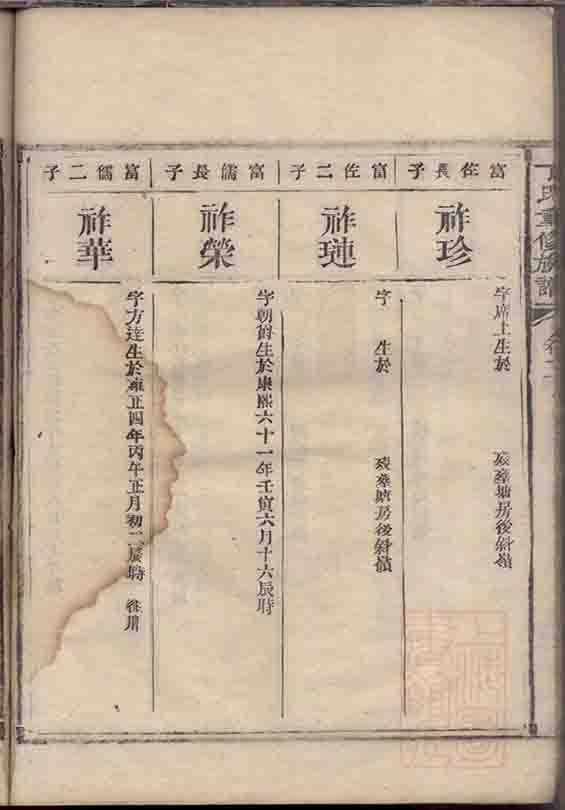 丁氏重修族譜
富佐長子
祚珍
字席上生於　歿葬塘房後斜嶺
富佐二子
祚璉
字　生於　歿葬塘房後斜嶺
富儒長子
祚榮
字朝爵生於康熙六十一年壬寅六月十六辰時
富儒二子
祚華
字方達生於雍正四年丙午正月初二辰時　往川